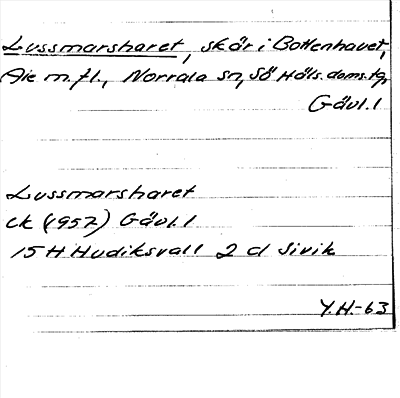 Lussmarsharet, skär i Bottenhavet,
Ale m.fl., Norrala sn, Sö Häls. doms. tg,
Gävl. l
Lussmarsharet
ek (1957) Gävl. l
15 H Hudiksvall 2 d Sivik
Y.H.-63